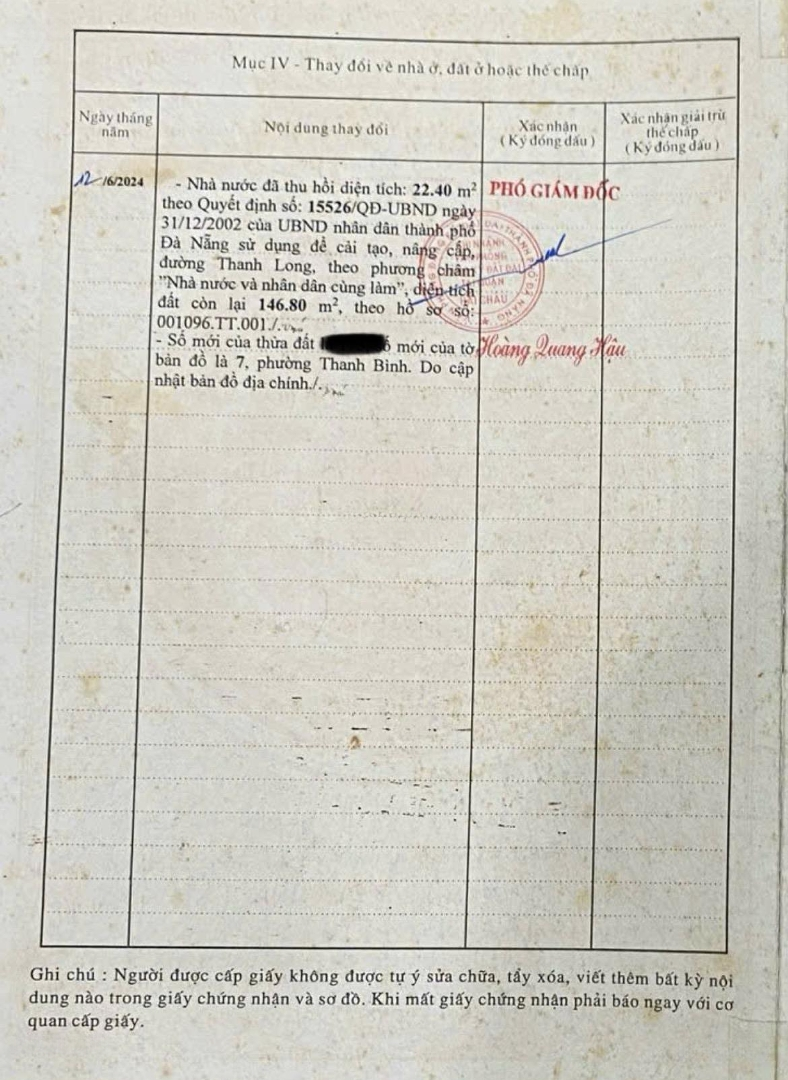 Mục IV - Thay đổi về nhà ở, đất ở hoặc thế chấp
Ngày tháng
năm
Nội dung thay đổi
Xác nhận
( Ký đóng dấu )
Xác nhận giải trừ
thế chấp
( Ký đóng dấu )
12/6/2024
- Nhà nước đã thu hồi diện tích: 22.40 m²
theo Quyết định số: 15526/QĐ-UBND ngày
31/12/2002 của UBND nhân dân thành phố
Đà Nẵng sử dụng để cải tạo, nâng cấp,
đường Thanh Long, theo phương châm
"Nhà nước và nhân dân cùng làm", diện tích
đất còn lại 146.80 m², theo hồ sơ số:
001096.TT.001./.
- Số mới của thửa đất mới của tờ
bản đồ là 7, phường Thanh Bình. Do cập
nhật bản đồ địa chính./.
PHÓ GIÁM ĐỐC
Hoàng Quang Hậu
Ghi chú : Người được cấp giấy không được tự ý sửa chữa, tẩy xóa, viết thêm bất kỳ nội
dung nào trong giấy chứng nhận và sơ đồ. Khi mất giấy chứng nhận phải báo ngay với cơ
quan cấp giấy.